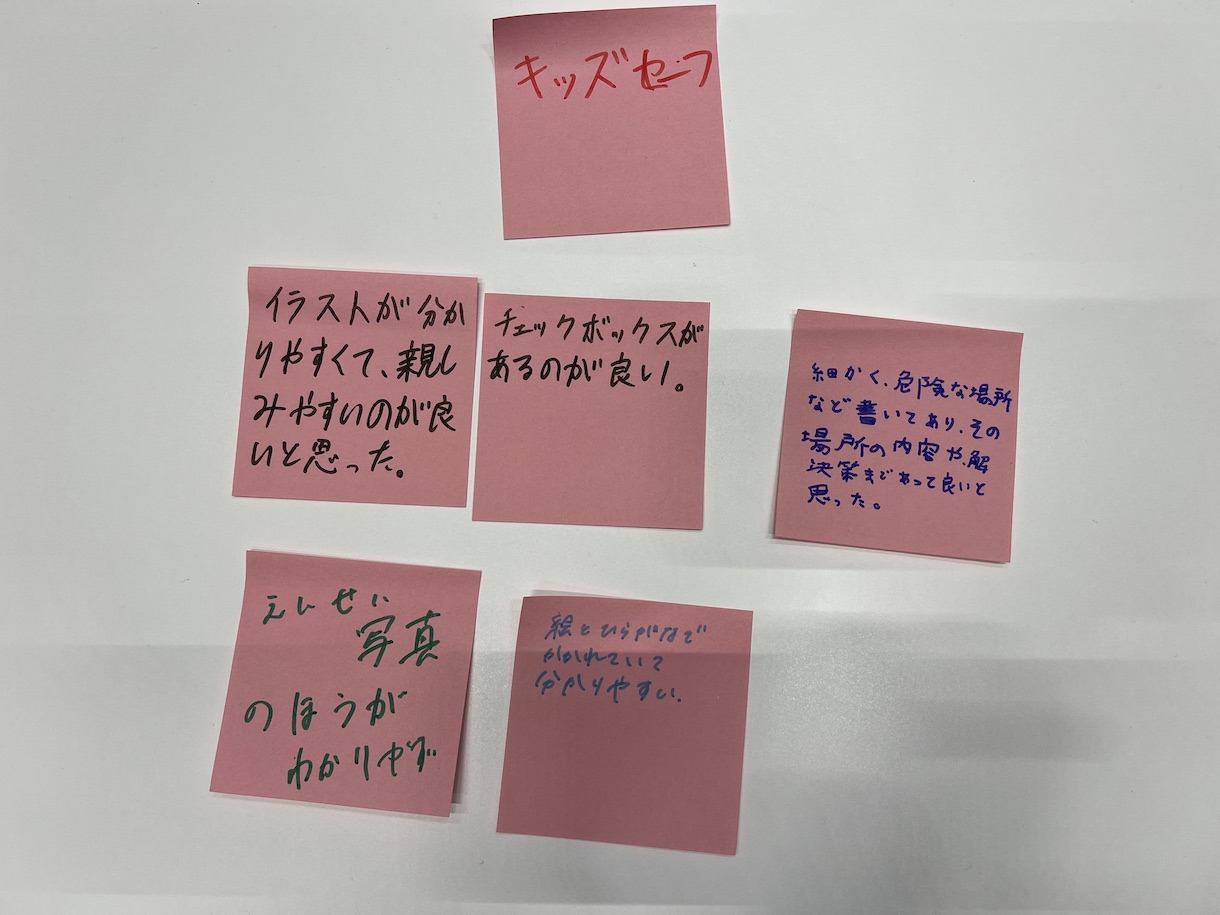 キッズセーフ
イラストが分か
りやすくて、親し
みやすいのが良
いと思った。
チェックボックスが
あるのが良い。
細かく、危険な場所
など書いてあり、その
場所の内容や、解
決策まであって良いと
思った。
えいせい
写真
のほうが
わかりやす
絵とひらがなで
かかれていて
分かりやすい.